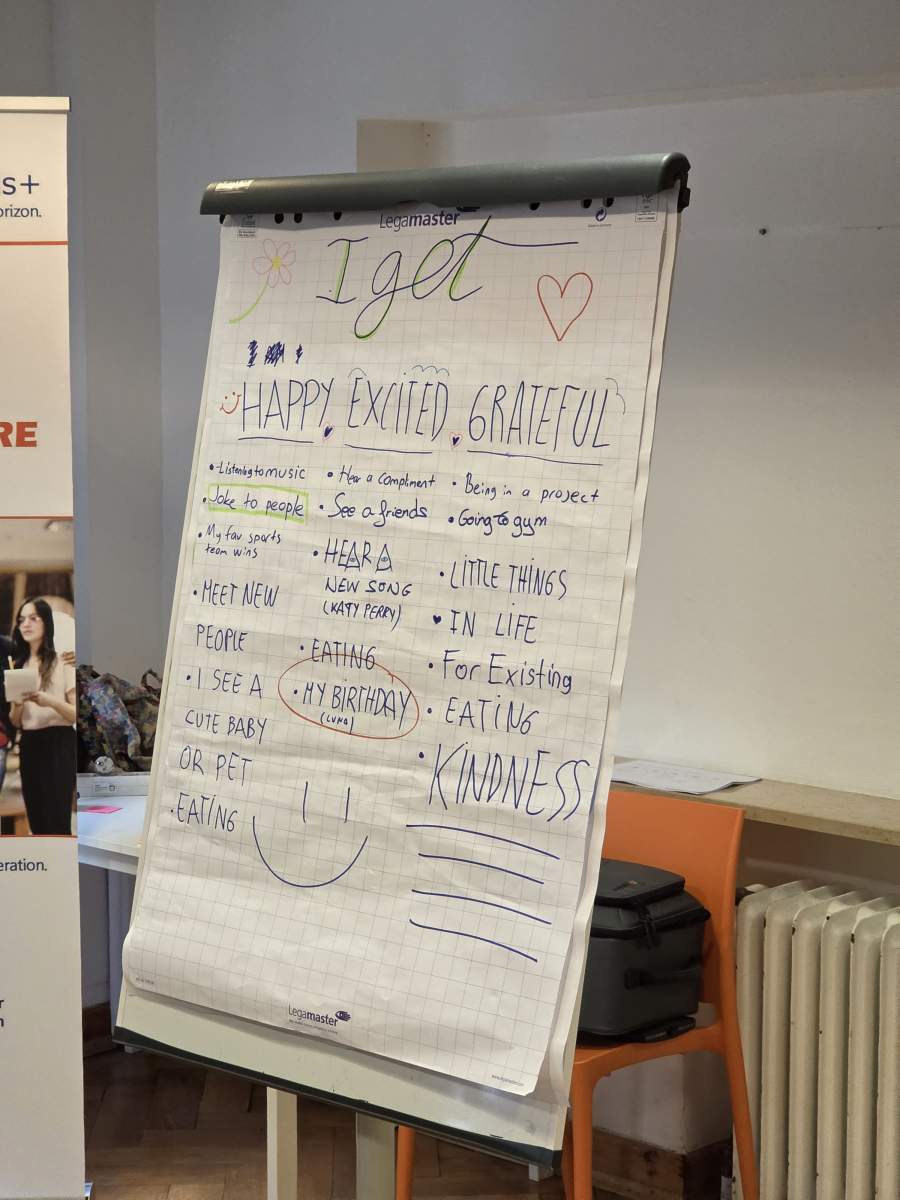 s+
orizon.
RE
eration.
Legamaster
I get
HAPPY EXCITED GRATEFUL
• Listening to music
• Joke to people
• My fav sports
team wins
• MEET NEW
PEOPLE
• I SEE A
CUTE BABY
OR PET
• EATING
• Hear a compliment
• See a friends
• HEAR A
NEW SONG
(KATY PERRY)
• EATING
• MY BIRTHDAY
(LUNA)
• Being in a project
• Going to gym
• LITTLE THINGS
♥ IN LIFE
• For Existing
• EATING
• KINDNESS
Legamaster